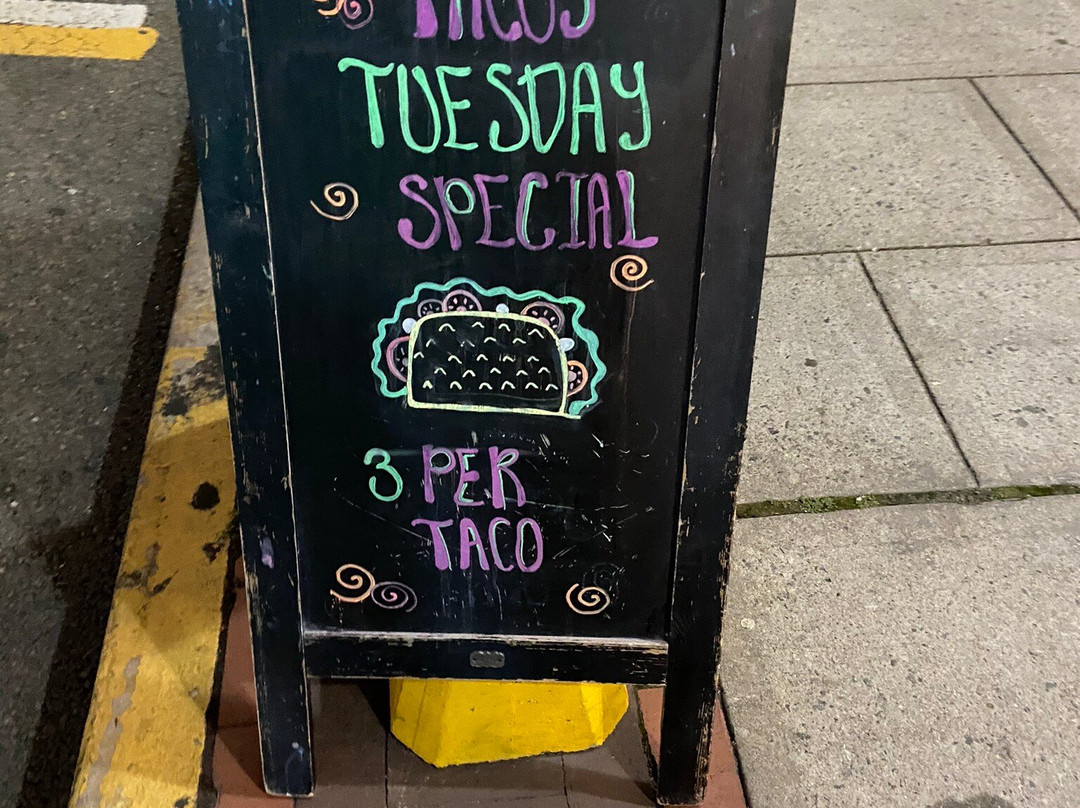 TACOS
TUESDAY
SPECIAL
3 PER
TACO